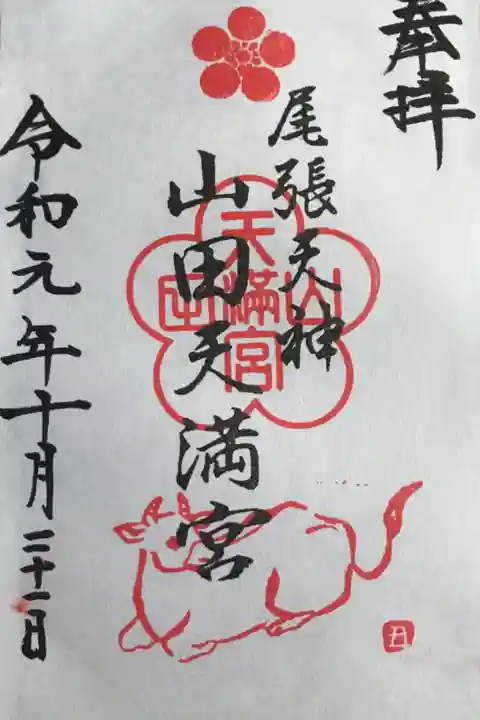 奉拝
尾張天神
山田天満宮
山田天満宮
令和元年十月二十一日
丑